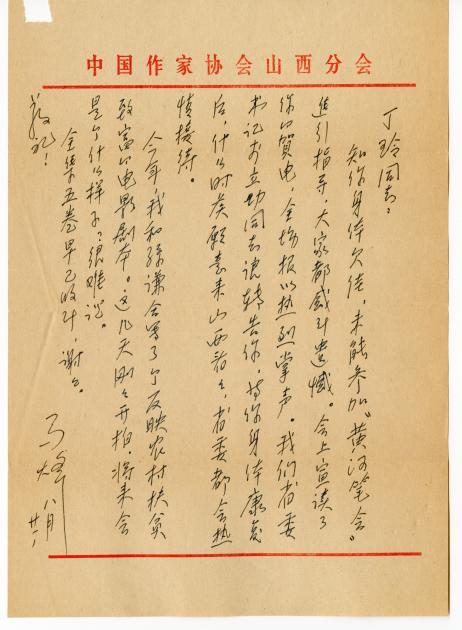 中国作家协会山西分会
丁玲同志：
知你身体欠佳，未能参加"黄河笔会"
进行指导，大家都感到遗憾。会上宣读了
你的贺电，全场报以热烈掌声。我们省委
书记李立功同志让转告你，待你身体康复
后，什么时候愿意来山西看看，省委都会热
情接待。
今年，我和孙谦合写了个反映农村扶贫
致富的电影剧本。这几天刚刚开拍，将来会
是个什么样子？很难说。
全集五卷早已收到，谢谢。
敬礼！
马烽
八月廿